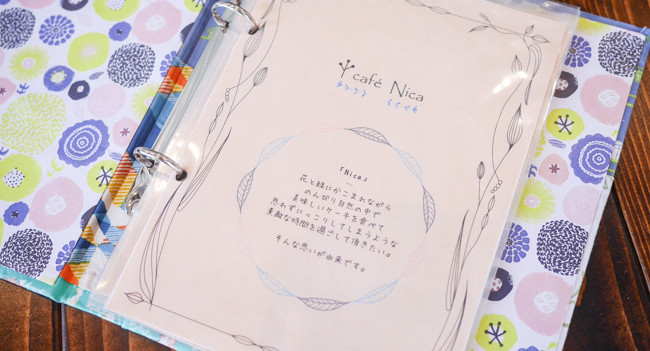 café Nica
「Nica」
花と緑にかこまれながら
のんびり自然の中で
美味しいケーキを食べて
思わずにっこりしてしまうような
素敵な時間を過ごして頂きたい。
そんな思いが由来です。